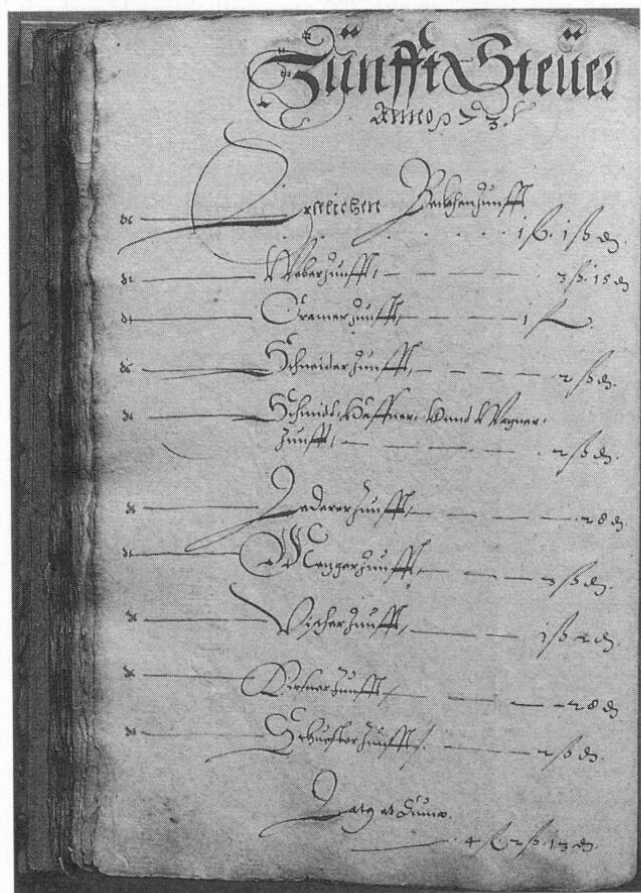 Zünfft Steüer
Anno
Erstlichen Beckhenzunfft
1 fl. 1 ß dn.
Weberzunfft, 3 ß. 15 dn
Cramerzunfft, 1 fl.
Schneiderzunfft, 2 ß dn.
Schmidt, Haffner, Vnnd Wagner
zunfft, 2 ß dn.
Ledererzunfft, 28 dn.
Mezgerzunfft, ß dn.
Vischerzunfft, 1 ß 2 dn.
zunfft, 28 dn
Schuesterzunfft, 2 ß dn.
Latus Suma.
4 fl. 2 ß 13 dn.